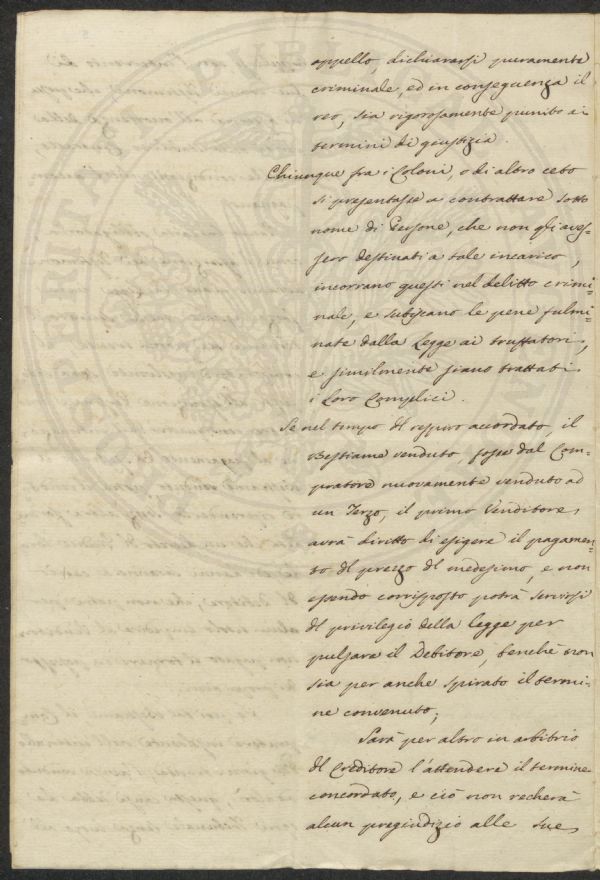 appello, dichiararsi puramente
criminale, ed in conseguenza il
reo, sia rigorosamente punito ai
termini di giustizia.
Chiunque fra i Coloni, o di altro ceto
si presentasse a contrattare sotto
nome di Persone, che non gli aves=
sero destinati a tale incarico,
incorrano questi nel delitto crimi=
nale, e subiscano le pene fulmi=
nate dalla Legge ai truffatori,
e similmente siano trattati
i Loro Complici.
Se nel tempo del respiro accordato, il
Bestiame venduto, fosse dal Com=
pratore nuovamente venduto ad
un Terzo, il primo Venditore,
avrà diritto di esigere il pagamen=
to del prezzo del medesimo, e non
essendo corrisposto potrà servirsi
del privilegio della legge per
pulsare il Debitore, benchè non
sia per anche spirato il termi=
ne convenuto;
Sarà per altro in arbitrio
del Creditore l'attendere il termine
concordato, e ciò non recherà
alcun pregiudizio alle sue